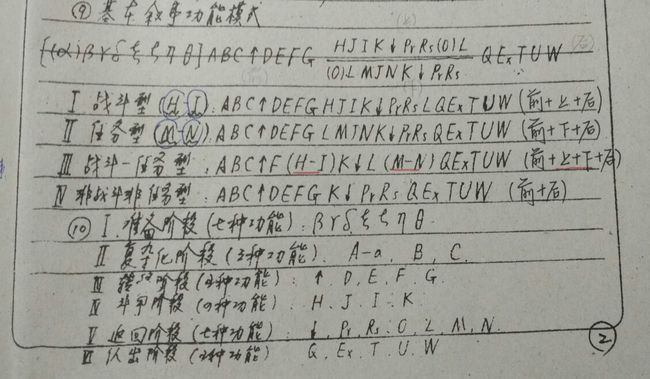 ⑨ 基本叙事功能模式
[(α)βγδεζηθ]ABC↑DEFG HJIK↓PrRs(O)L QExTUW (后)
(O)LMJNK↓PrRs
I 战斗型 (H-I):ABC↑DEFG HJIK↓PrRs LQExTUW (前+上+后)
II 任务型 (M-N):ABC↑DEFG LMJNK↓PrRs QExTUW (前+下+后)
III 战斗-任务型:ABC↑F(H-I)K↓L(M-N)QExTUW (前+上+下+后)
IV 非战斗非任务型:ABC↑DEFG K↓PrRs QExTUW (前+后)
⑩ I 准备阶段(七种功能):βγδεζηθ.
II 复杂化阶段(3种功能). A-a. B. C.
阶段( 种功能):↑. D. E. F. G.
斗争阶段( 种功能):H. J. I. K.
V 返回阶段(七种功能):↓. Pr. Rs. O. L. M. N.
VI 认出阶段( 种功能) Q. Ex. T. U. W
②